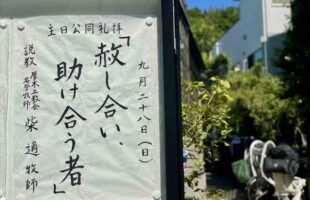 主日公同礼拝
九月二十八(日)
「赦し合い、
助け合う者」
説教 厚木上教会 名誉牧師 柴 適 牧師